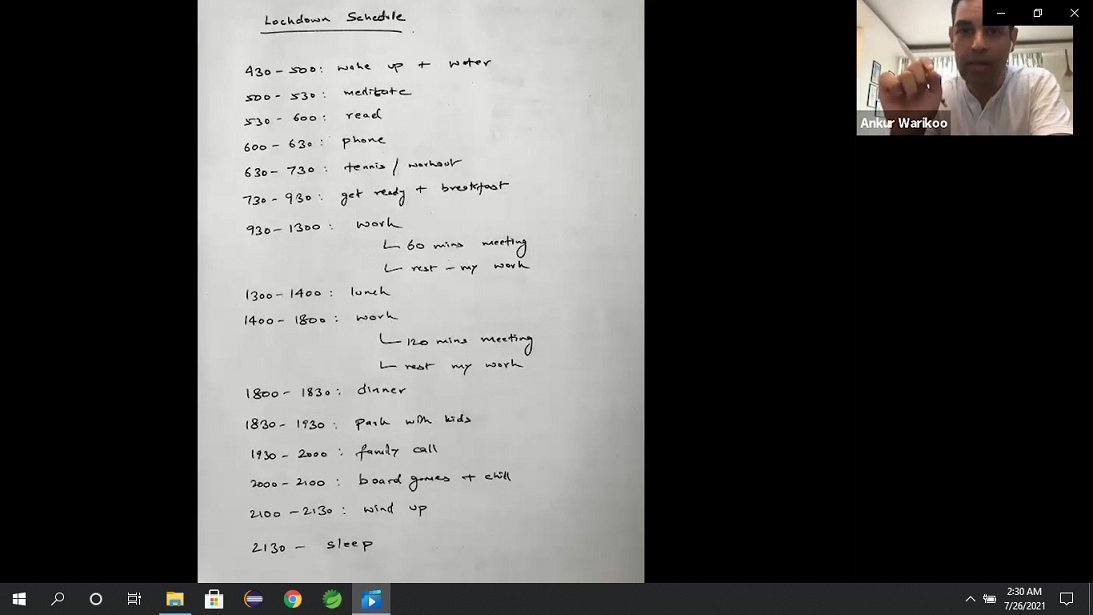 Lockdown Schedule
430 - 500: wake up + water
500 - 530: meditate
530 - 600: read
600 - 630: phone
630 - 730: tennis / workout
730 - 930: get ready + breakfast
930 - 1300: work
60 mins meeting
rest - my work
1300 - 1400: lunch
1400 - 1800: work
120 mins meeting
rest my work
1800 - 1830: dinner
1830 - 1930: park with kids
1930 - 2000: family call
2000 - 2100: board games + chill
2100 - 2130: wind up
2130 - sleep
Ankur Warikoo
2:30 AM
7/26/2021